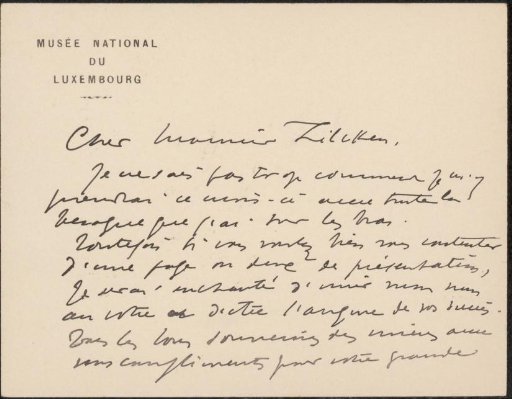 MUSÉE NATIONAL
DU
LUXEMBOURG
Cher Monsieur Zilcken,
Je ne sais pas trop comment je m'y
prendrai ce mois-ci avec toute la
besogne que j'ai sur les bras.
Toutefois si vous voulez bien vous contenter
d'une page ou deux de présentation,
je serai enchanté d'unir mon nom
au vôtre et d'être de vos succès.
Tous les bons souvenirs des miens avec
mes compliments pour votre grande